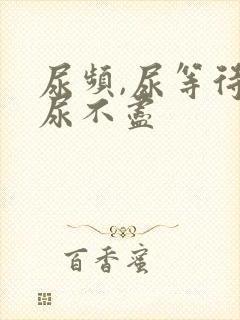 尿頻,尿等待
尿不盡
百香蜜